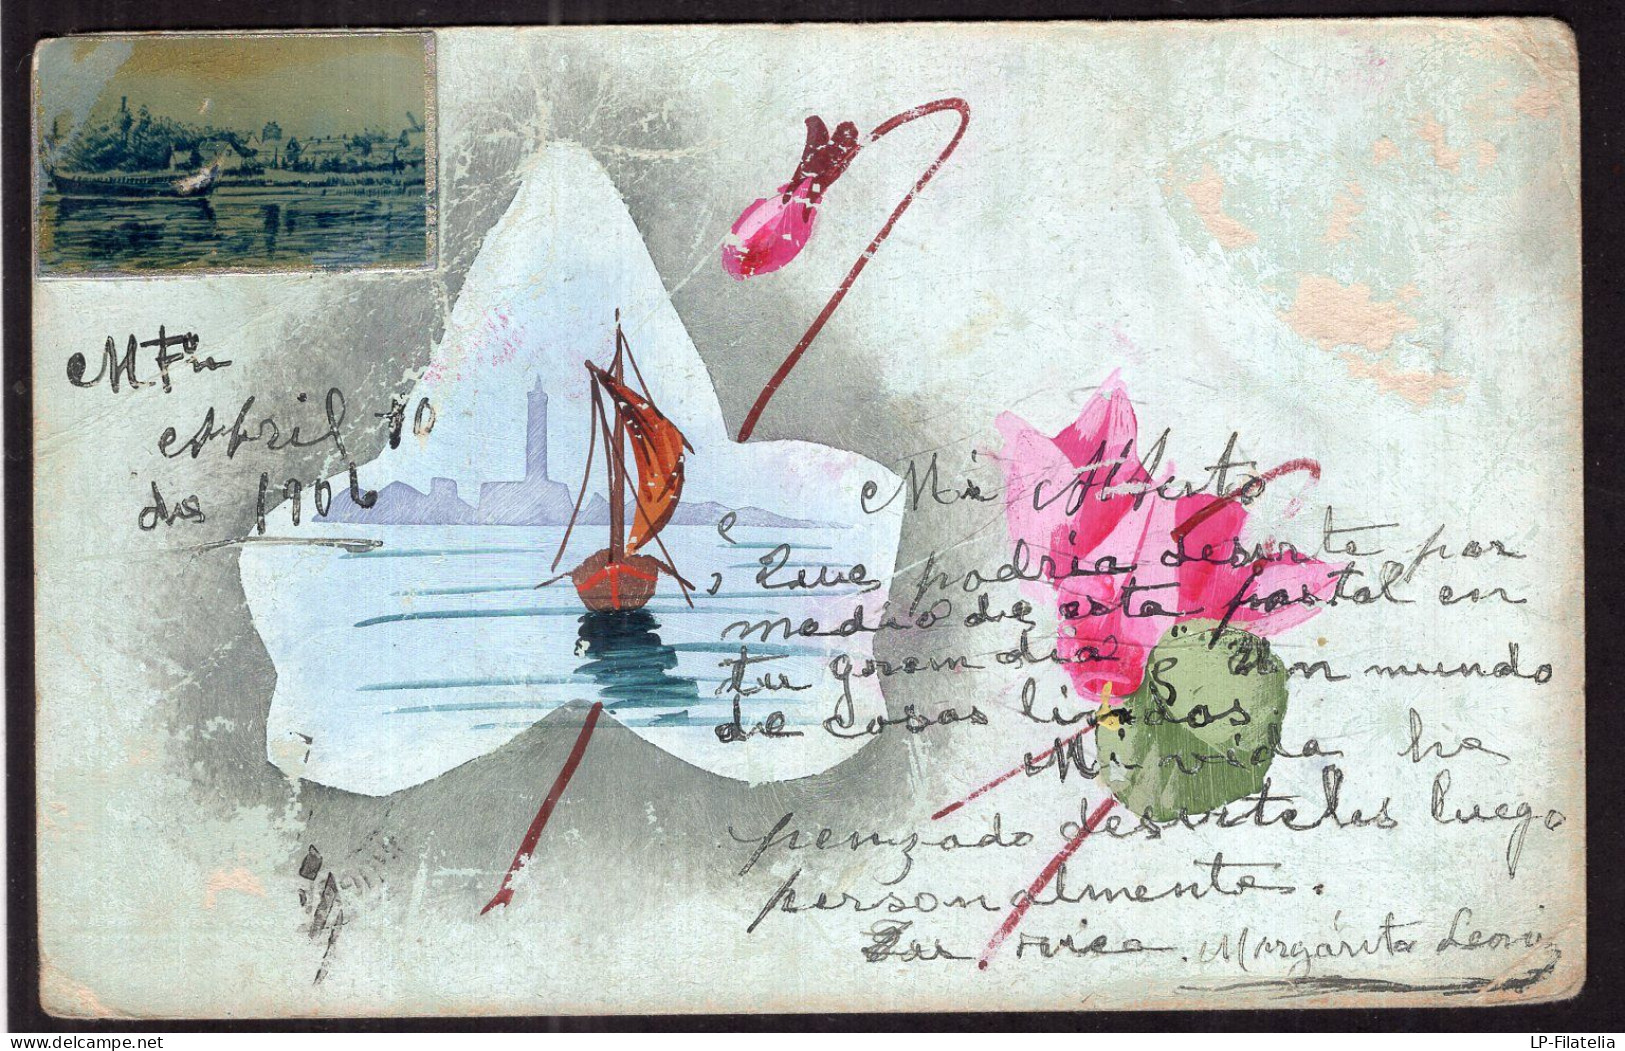 Abril 10
de 1906
Mi Alberto
¿ Que podria desirte por
medio de esta postal en
tu gran dia? Un mundo
de cosas lindas.
Mi vida he
penzado desirtelas luego
personalmente.
Tu rica. Margárita Leoni
LP-Filatelia